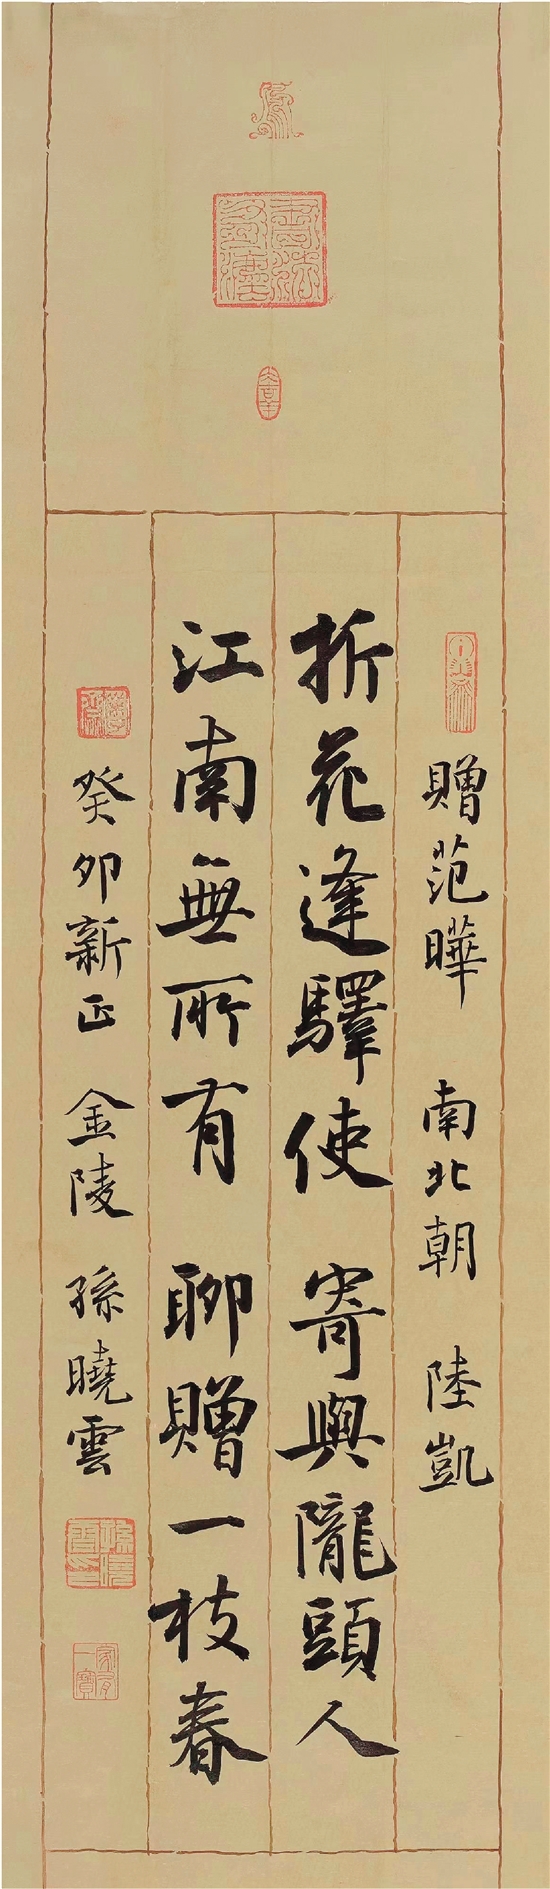 贈范曄 南北朝 陸凱
折花逢驛使 寄與隴頭人
江南無所有 聊贈一枝春
癸卯新正 金陵 孫曉雲